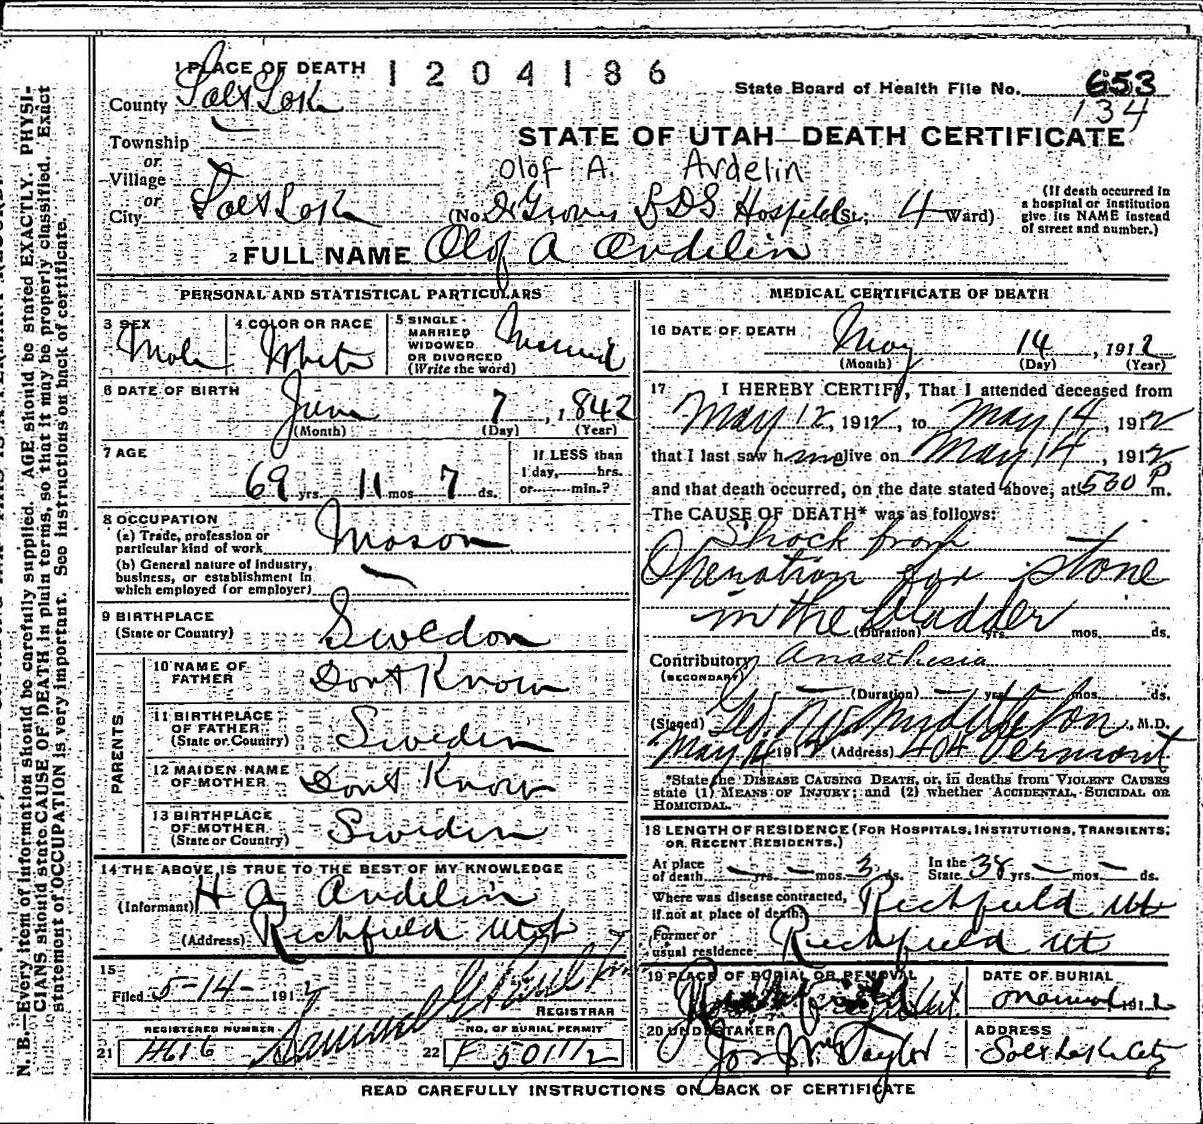 1 PLACE OF DEATH
1204186
State Board of Health File No. 653
134
County Salt Lake
Township
or
Village
or
City Salt Lake
STATE OF UTAH—DEATH CERTIFICATE
Olof A. Avdelin
(No. Dr Groves LDS Hospital St.; 4 Ward)
(If death occurred in
a hospital or institution
give its NAME instead
of street and number.)
2 FULL NAME Olof A Avdelin
PERSONAL AND STATISTICAL PARTICULARS
3 SEX
Male
4 COLOR OR RACE
White
5 SINGLE
MARRIED
WIDOWED
OR DIVORCED
(Write the word)
Married
6 DATE OF BIRTH
June 7, 1842
(Month) (Day) (Year)
7 AGE
69 yrs. 11 mos. 7 ds.
If LESS than
1 day,......hrs.
or......min.?
8 OCCUPATION
(a) Trade, profession or
particular kind of work
Mason
(b) General nature of industry,
business, or establishment in
which employed (or employer)
9 BIRTHPLACE
(State or Country)
Swedon
PARENTS
10 NAME OF
FATHER
Dont Know
11 BIRTHPLACE
OF FATHER
(State or Country)
Sweden
12 MAIDEN NAME
OF MOTHER
Dont Know
13 BIRTHPLACE
OF MOTHER
(State or Country)
Sweden
14 THE ABOVE IS TRUE TO THE BEST OF MY KNOWLEDGE
(Informant) H A Avdelin
(Address) Richfield Utah
15
Filed 5-14- 1912
REGISTRAR
REGISTERED NUMBER
21 H616
NO. OF BURIAL PERMIT
22
MEDICAL CERTIFICATE OF DEATH
16 DATE OF DEATH
May 14, 1912
(Month) (Day) (Year)
17 I HEREBY CERTIFY, That I attended deceased from
May 12, 1912, to May 14, 1912
that I last saw h im alive on May 14, 1912
and that death occurred, on the date stated above, at 530 P m.
The CAUSE OF DEATH* was as follows:
Shock from
Operation for stone
in the Bladder
(Duration) yrs. mos. ds.
Contributory Anasthesia
(SECONDARY)
(Duration) yrs. mos. ds.
(Signed) M.D.
May 1912 (Address) 404 Vermont
*State the DISEASE CAUSING DEATH, or, in deaths from VIOLENT CAUSES
state (1) MEANS OF INJURY; and (2) whether ACCIDENTAL, SUICIDAL OR
HOMICIDAL.
18 LENGTH OF RESIDENCE (FOR HOSPITALS, INSTITUTIONS, TRANSIENTS,
OR RECENT RESIDENTS.)
At place
of death — yrs. — mos. 3 ds.
In the
State 38 yrs. — mos. — ds.
Where was disease contracted,
if not at place of death? Richfield Ut
Former or
usual residence Richfield Ut
19 PLACE OF BURIAL OR REMOVAL
DATE OF BURIAL
1912
20 UNDERTAKER
Jos Wm Taylor
ADDRESS
Salt Lake City
READ CAREFULLY INSTRUCTIONS ON BACK OF CERTIFICATE
N. B.—Every item of information should be carefully supplied. AGE should be stated EXACTLY. PHYSI-
CIANS should state CAUSE OF DEATH in plain terms, so that it may be properly classified. Exact
statement of OCCUPATION is very important. See instructions on back of certificate.